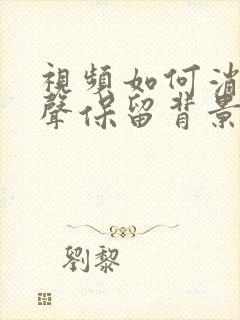 視頻如何消
聲保留背景
劉黎